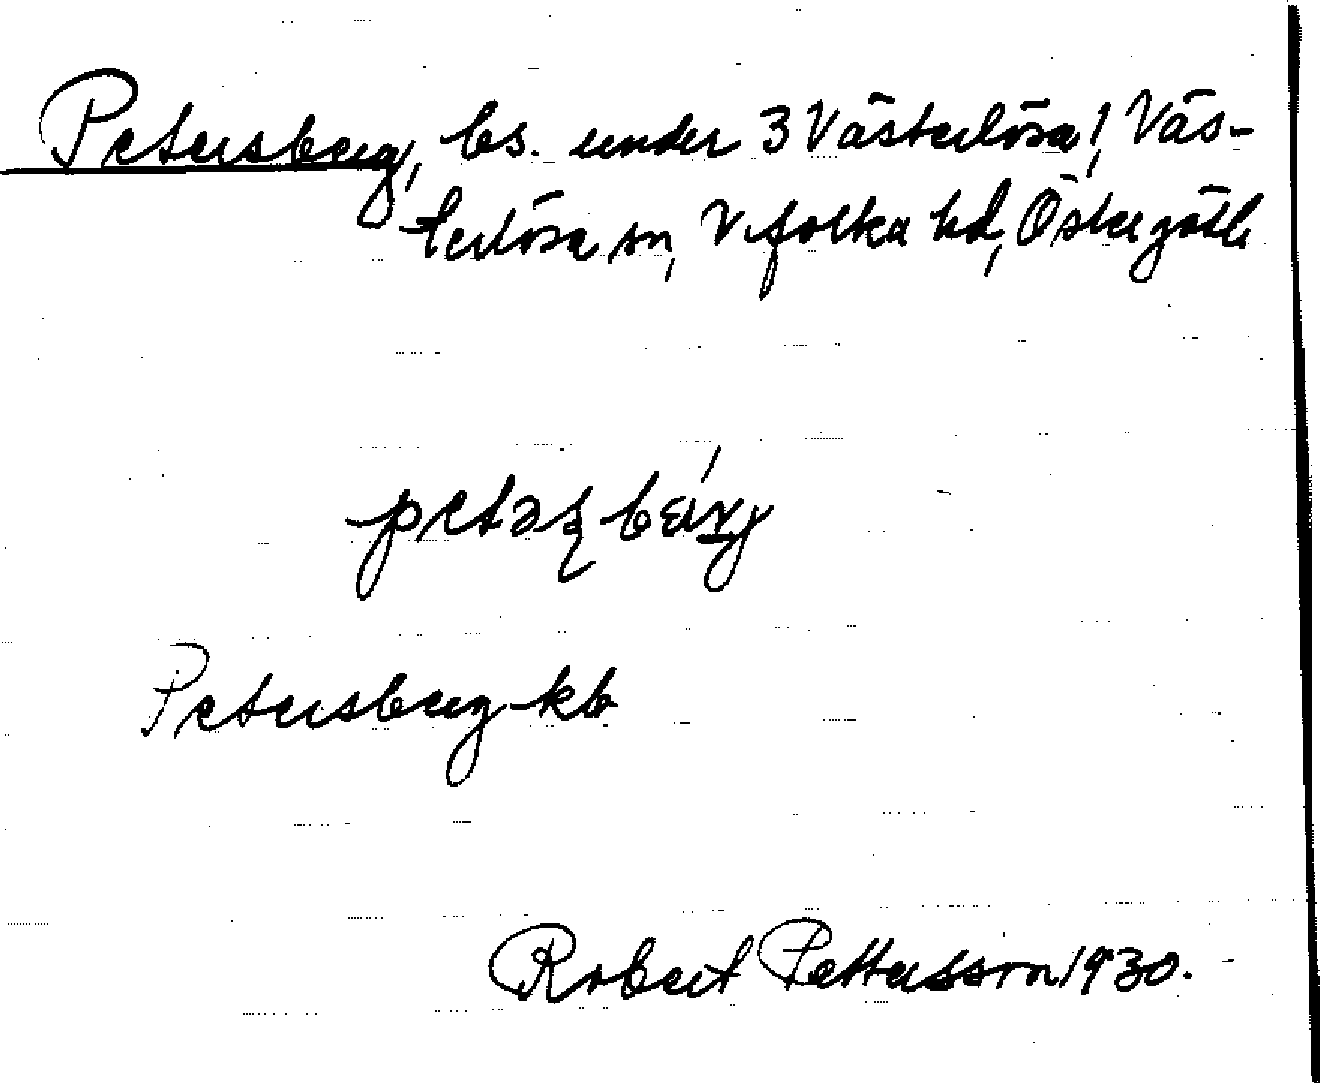 Petersberg, bs. under 3 Västerlösa!, Väs-
terlösa sn, Vifolka hd, Östergötl
Petersberg kb
Robert Pettersson 1930.